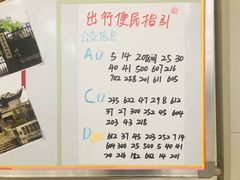 出行便民指引
公交信息
A口
5 14 20区间 25 30
40 41 500 607 216
702 258 201 611 605
C口
235 622 47 298 612
37 27 300 252 45 604
203 43 218
D
612 37 45 203 252 714
604 300 25 500 5 40 41
20 216 582 602 14 201